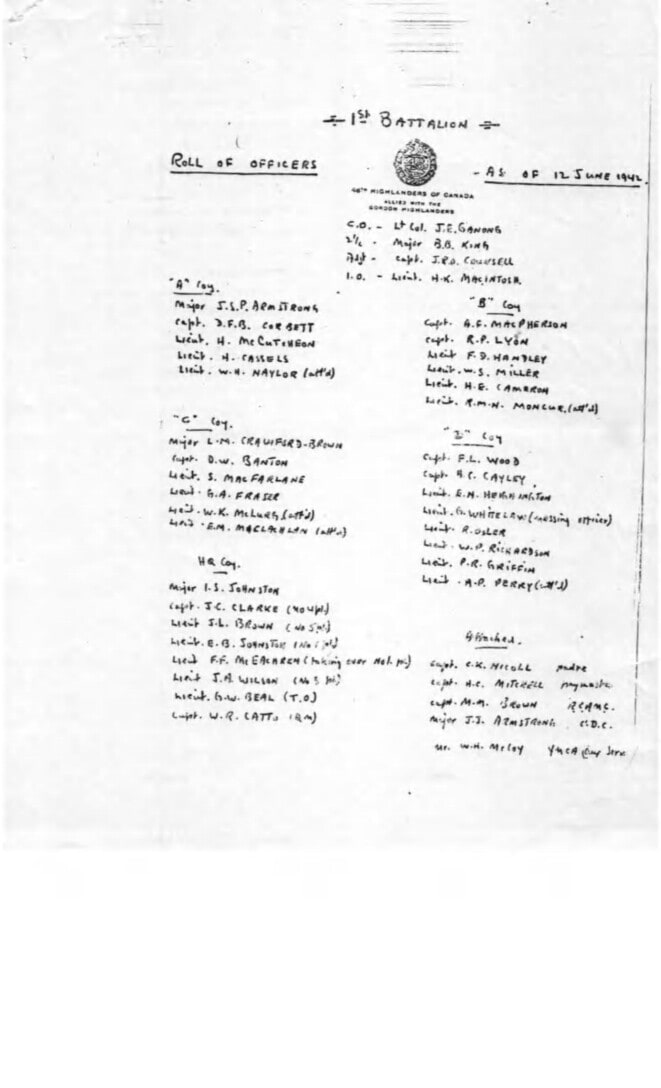 1st BATTALION
ROLL OF OFFICERS
- AS OF 12 JUNE 1942.
48TH HIGHLANDERS OF CANADA
ALLIED WITH THE
GORDON HIGHLANDERS
C.O. - Lt Col. J.E. GANONG
2i/c - Major B.B. KING
Adjt - Capt. J.R.O. COUNSELL
I.O. - Lieut. H.K. MACINTOSH.
"A" Coy.
Major J.S.P. ARMSTRONG
Capt. D.F.B. CORBETT
Lieut. H. McCUTCHEON
Lieut. H. CASSELS
Lieut. W.H. NAYLOR (att'd)
"B" Coy
Capt. A.F. MACPHERSON
Capt. R.P. LYON
Lieut F.D. HANDLEY
Lieut. W.S. MILLER
Lieut. H.E. CAMERON
Lieut. R.M.N. MONCUR. (att'd)
"C" Coy.
Major L.M. CRAWFORD-BROWN
Capt. D.W. BANTON
Lieut. S. MACFARLANE
Lieut. G.A. FRASER
Lieut. W.K. McLURG (att'd)
Lieut. E.M. MACLACHLAN (att'd)
"D" Coy
Capt. F.L. WOOD
Capt. A.C. CAYLEY
Lieut. E.H. HEIGHINGTON
Lieut. G. WHITELAW (messing officer)
Lieut. R. OSLER
Lieut. W.P. RICHARDSON
Lieut. P.R. GRIFFIN
Lieut. A.D. PERRY (att'd)
HQ Coy.
Major I.S. JOHNSTON
Capt. J.C. CLARKE (No 4 pl.)
Lieut J.L. BROWN (No 5 pl.)
Lieut. E.B. JOHNSTON (No pl)
Lieut F.F. McEACHREN (taking over No 1. pl)
Lieut J.A. WILSON (No 3 pl)
Lieut. G.W. BEAL (T.O)
Capt. W.R. CATTO (QM)
Attached.
Capt. C.K. NICOLL padre
Capt. H.C. MITCHELL paymaster
Capt. M.M. BROWN RCAMC.
Major J.J. ARMSTRONG C.D.C.
Mr. W.H. McCoy YMCA Serv.